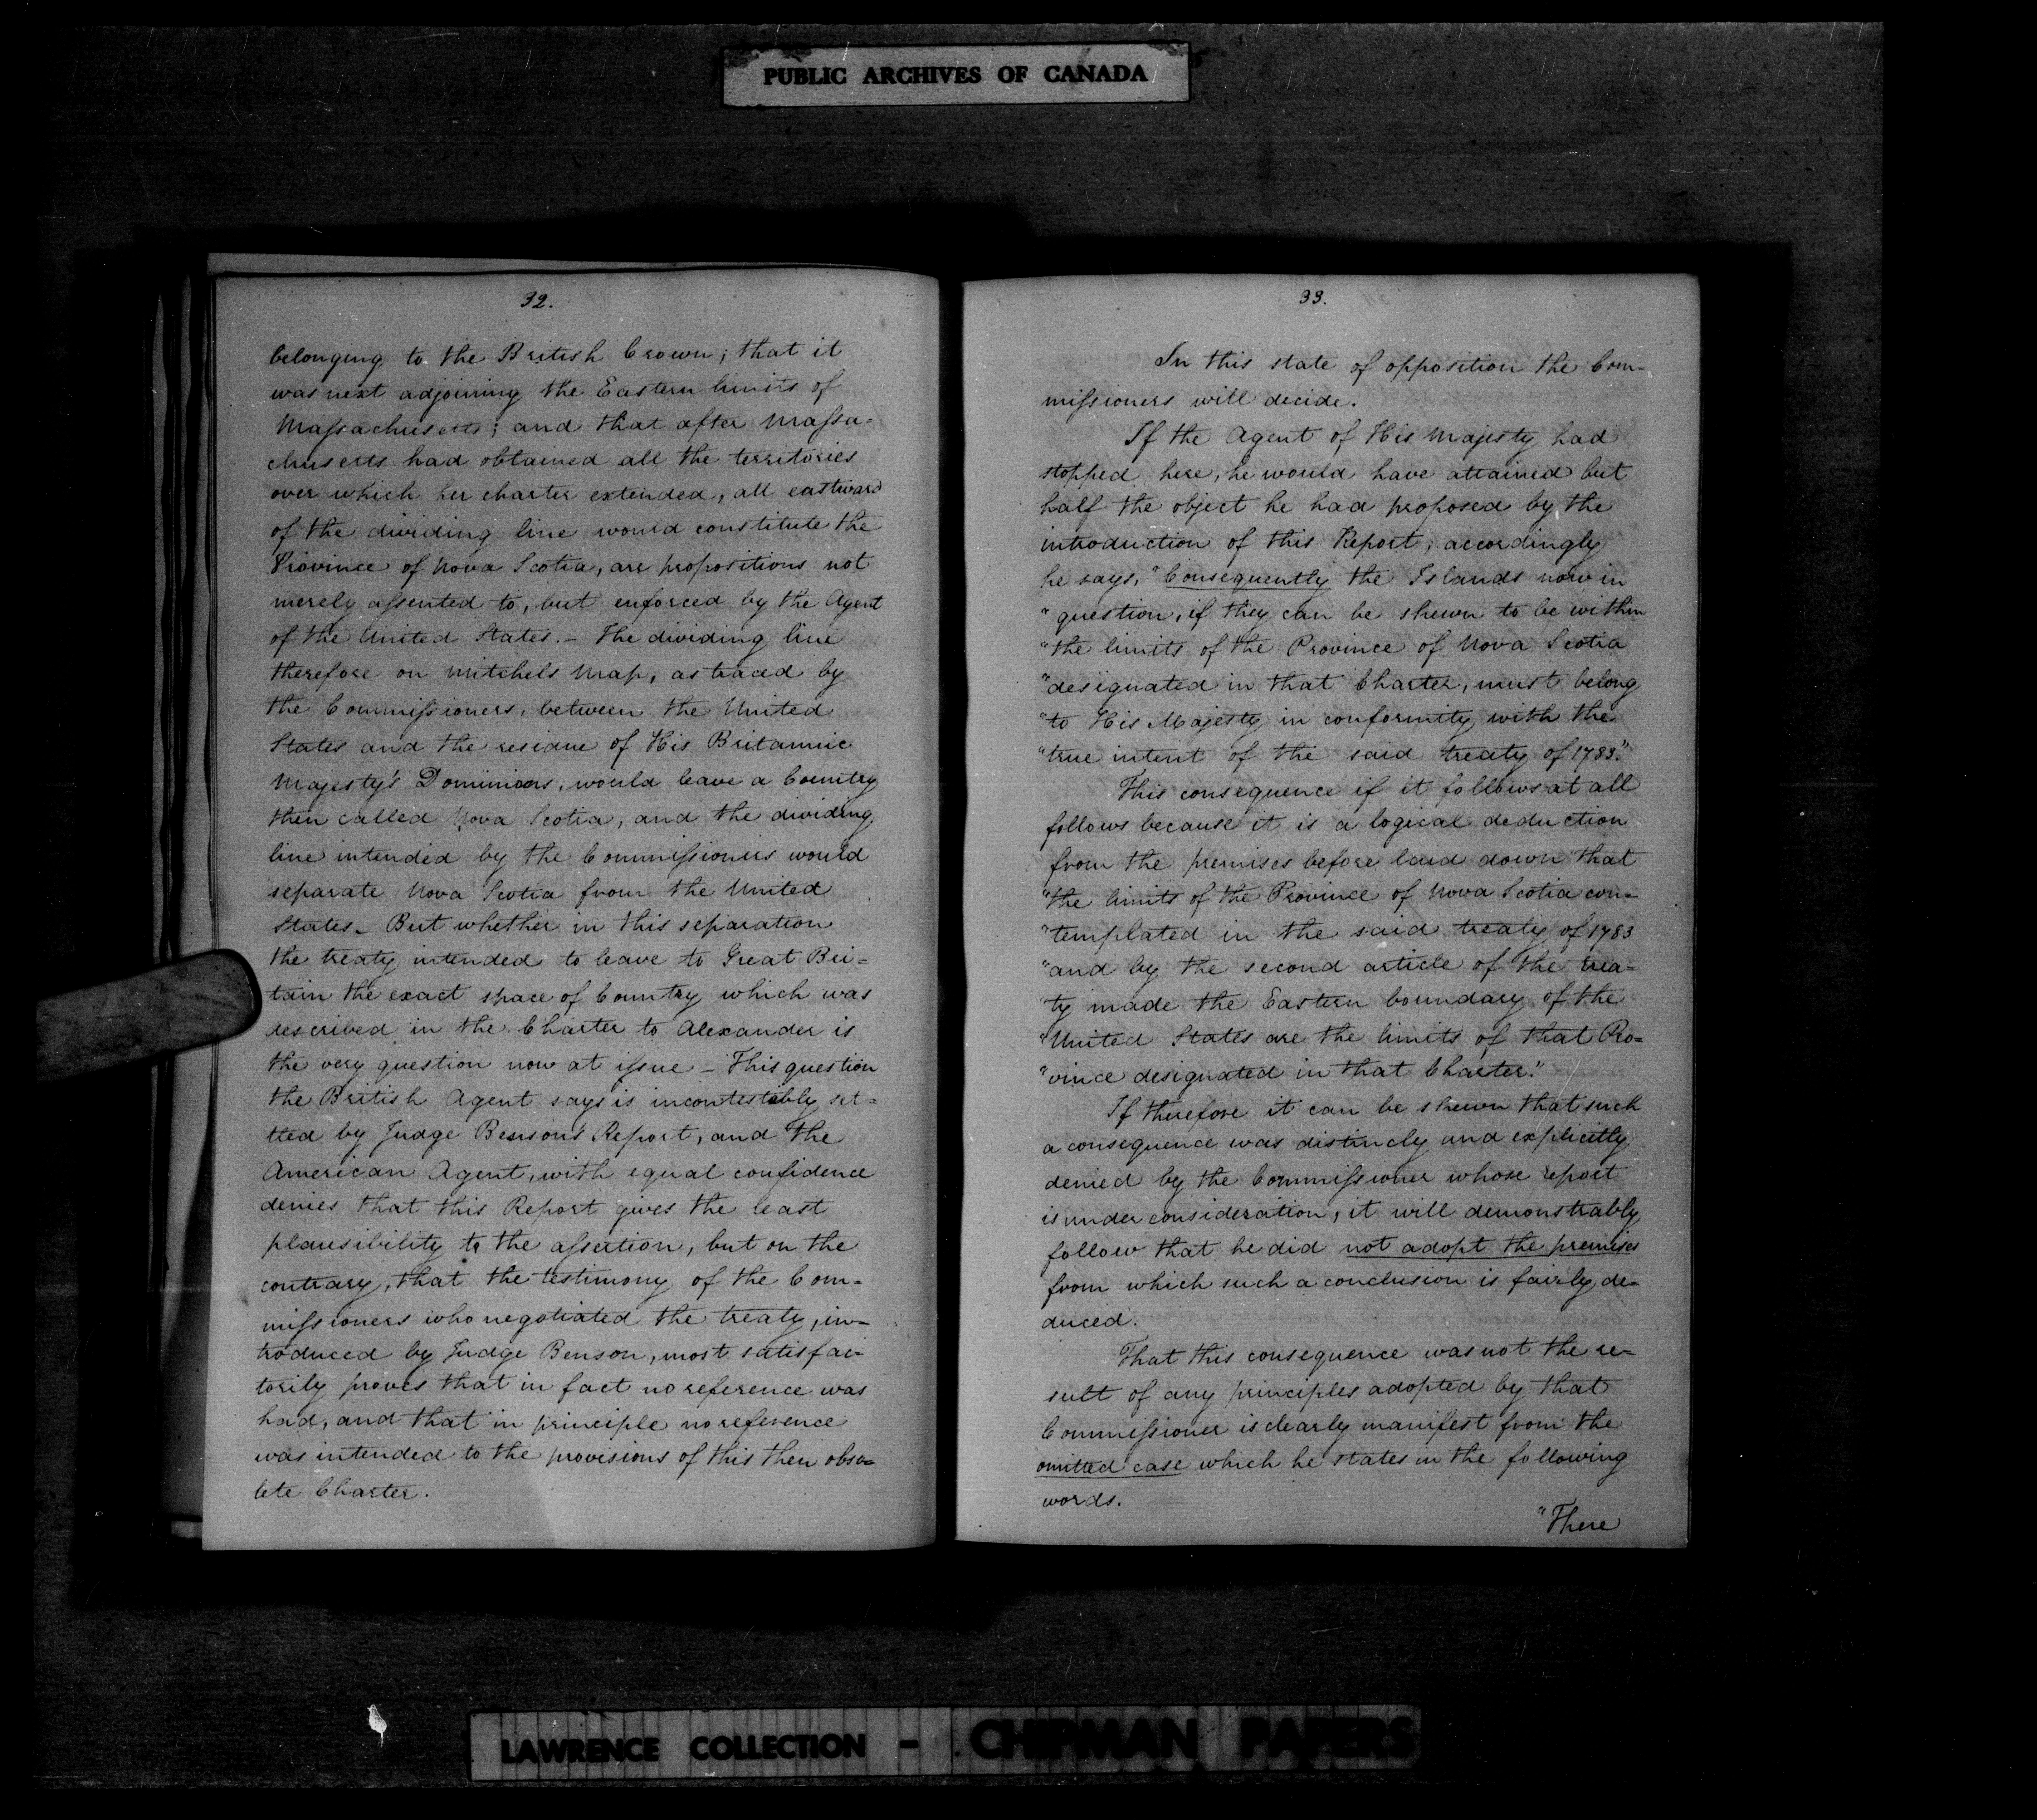 PUBLIC ARCHIVES OF CANADA
32.
belonging to the British Crown; that it
was next adjoining the Eastern limits of
Massachusetts; and that after Massa-
chusetts had obtained all the territories
over which her charter extended, all eastward
of the dividing line would constitute the
Province of Nova Scotia, are propositions not
merely assented to, but enforced by the Agent
of the United States. – The dividing line
therefore on Mitchels Map, as traced by
the Commissioners, between the United
States and the residue of His Britannic
Majesty's Dominions, would leave a Country
then called Nova Scotia, and the dividing
line intended by the Commissioners would
separate Nova Scotia from the United
States – But whether in this separation
the treaty intended to leave to Great Bri=
tain the exact space of Country which was
described in the Charter to Alexander is
the very question now at issue – This question
the British Agent says is incontestibly set=
tled by Judge Benson's Report, and the
American Agent, with equal confidence
denies that this Report gives the least
plausibility to the assertion, but on the
contrary, that the testimony of the Com-
missioners who negotiated the treaty, in-
troduced by Judge Benson, most satisfac-
torily proves that in fact no reference was
had, and that in principle no reference
was intended to the provisions of this then obso-
lete Charter.
33.
In this state of opposition the Com-
missioners will decide.
If the Agent of His Majesty had
stopped here, he would have attained but
half the object he had proposed by the
introduction of this Report; accordingly
he says, "Consequently the Islands now in
"question, if they can be shewn to be within
"the limits of the Province of Nova Scotia
"designated in that Charter, must belong
"to His Majesty in conformity with the
"true intent of the said treaty of 1783."
This consequence if it follows at all
follows because it is a logical deduction
from the premises before laid down "that
"the limits of the Province of Nova Scotia con-
"templated in the said treaty of 1783
"and by the second article of the trea-
"ty made the Eastern boundary of the
"United States are the limits of that Pro=
"vince designated in that Charter."
If therefore it can be shewn that such
a consequence was distincly and explicitly
denied by the Commissioner whose report
is under consideration, it will demonstrably
follow that he did not adopt the premises
from which such a conclusion is fairly de-
duced.
That this consequence was not the re-
sult of any principles adopted by that
Commissioner is clearly manifest from the
omitted case which he states in the following
words.
"There
LAWRENCE COLLECTION - CHIPMAN PAPERS